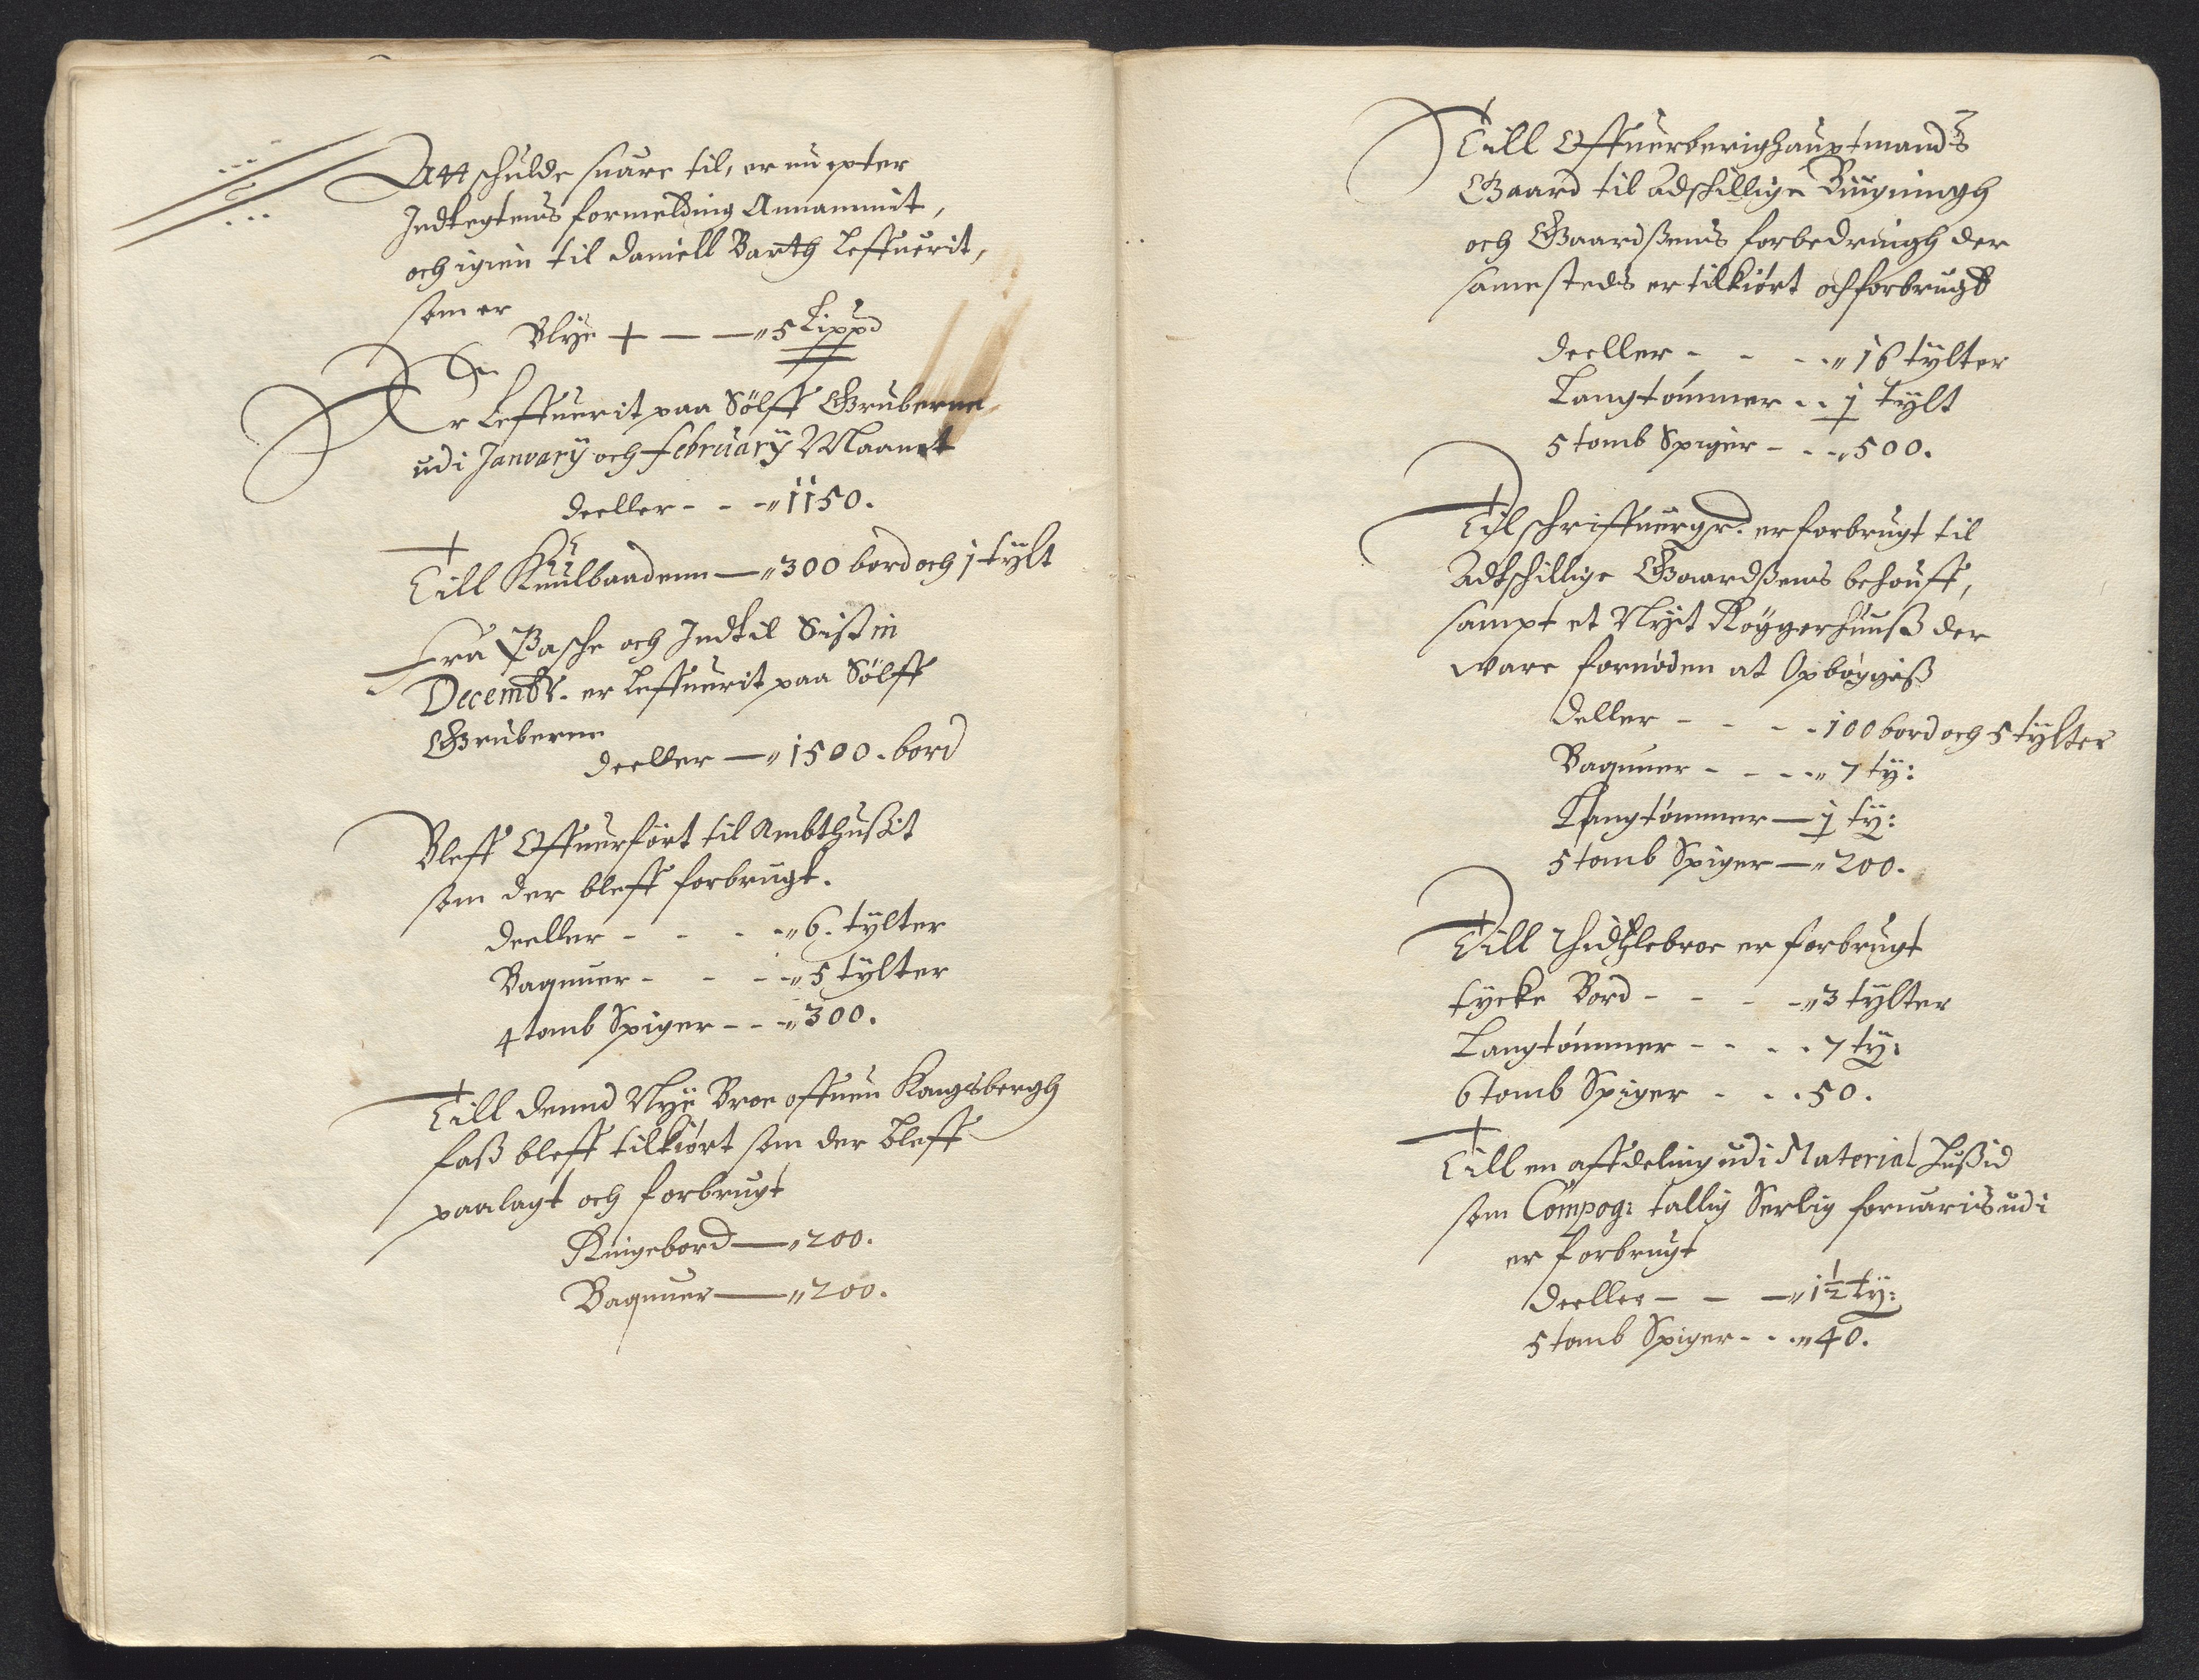 Att schulde suare til, er nu epter
Indtegtens formelding Annammit,
och igien til Daniell Barth Leffuerit,
som er
Blÿe + — — 5 Lippd
Er Leffuerit paa Sölff Gruberne
udi Janvarÿ och februarÿ Maanet
deeller - - - 1150.
Till Kuulbaadenn — 300 bord och 1 tÿlt
Fra Paasche och Indtil Sist in
Decembr. er Leffuerit paa Sölff
Gruberne
deeller — 1500. bord
Bleff Offuerfört til Ambthusit
som der bleff forbrugt.
deeller - - - - 6. tÿlter
Bagnuer - - - - 5 tÿlter
4 tomb Spiger - - - 300.
Till dennd Nÿe Broe offuen Kongsbergh
faß bleff tilkiört som der bleff
paalagt och forbrugt
Ringebord — 200.
Bagnuer — 200.
Till Offuerberighauptmands
Gaard til adschillige Buugningh
och Gaardßens forbedringh der
samesteds er tilkiört och forbrugt
deeller - - - - 16 tÿlter
Langtömmer - - 1 tÿlt
5 tomb Spiger - - - 500.
Til schriffuergr. er forbrugt til
Adtschillige Gaardßens behouff,
sampt et Nÿit Röggerhuuß der
ware fornöden at Opbÿggiß
deller - - - - 100 bord och 5 tÿlter
Bagnuer - - - - 7 tÿ:
Langtömmer — 1 tÿ:
5 tomb Spiger — 200.
Till er forbrugt
tycke Bord - - - - 3 tÿlter
Langtömmer - - - - 7 tÿ:
6 tomb Spiger - - - 50.
Till en affdeling udi Material Hußid
som Compog: tallig Serlig foruaris udi
er forbrugt
deeller - - — 1½ tÿ:
5 tomb Spiger - - - 40.